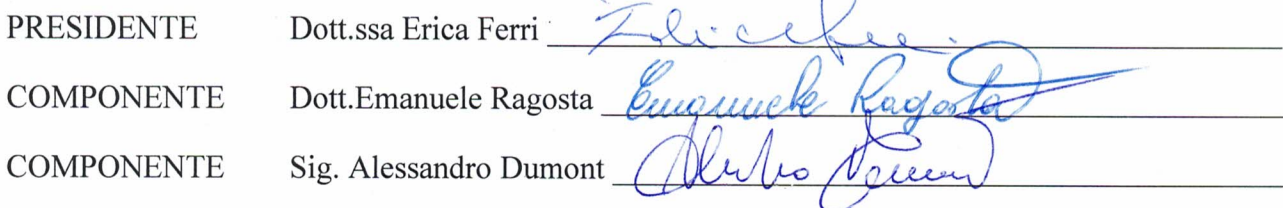 PRESIDENTE Dott.ssa Erica Ferri Erica Ferri
COMPONENTE Dott.Emanuele Ragosta Emanuele Ragosta
COMPONENTE Sig. Alessandro Dumont